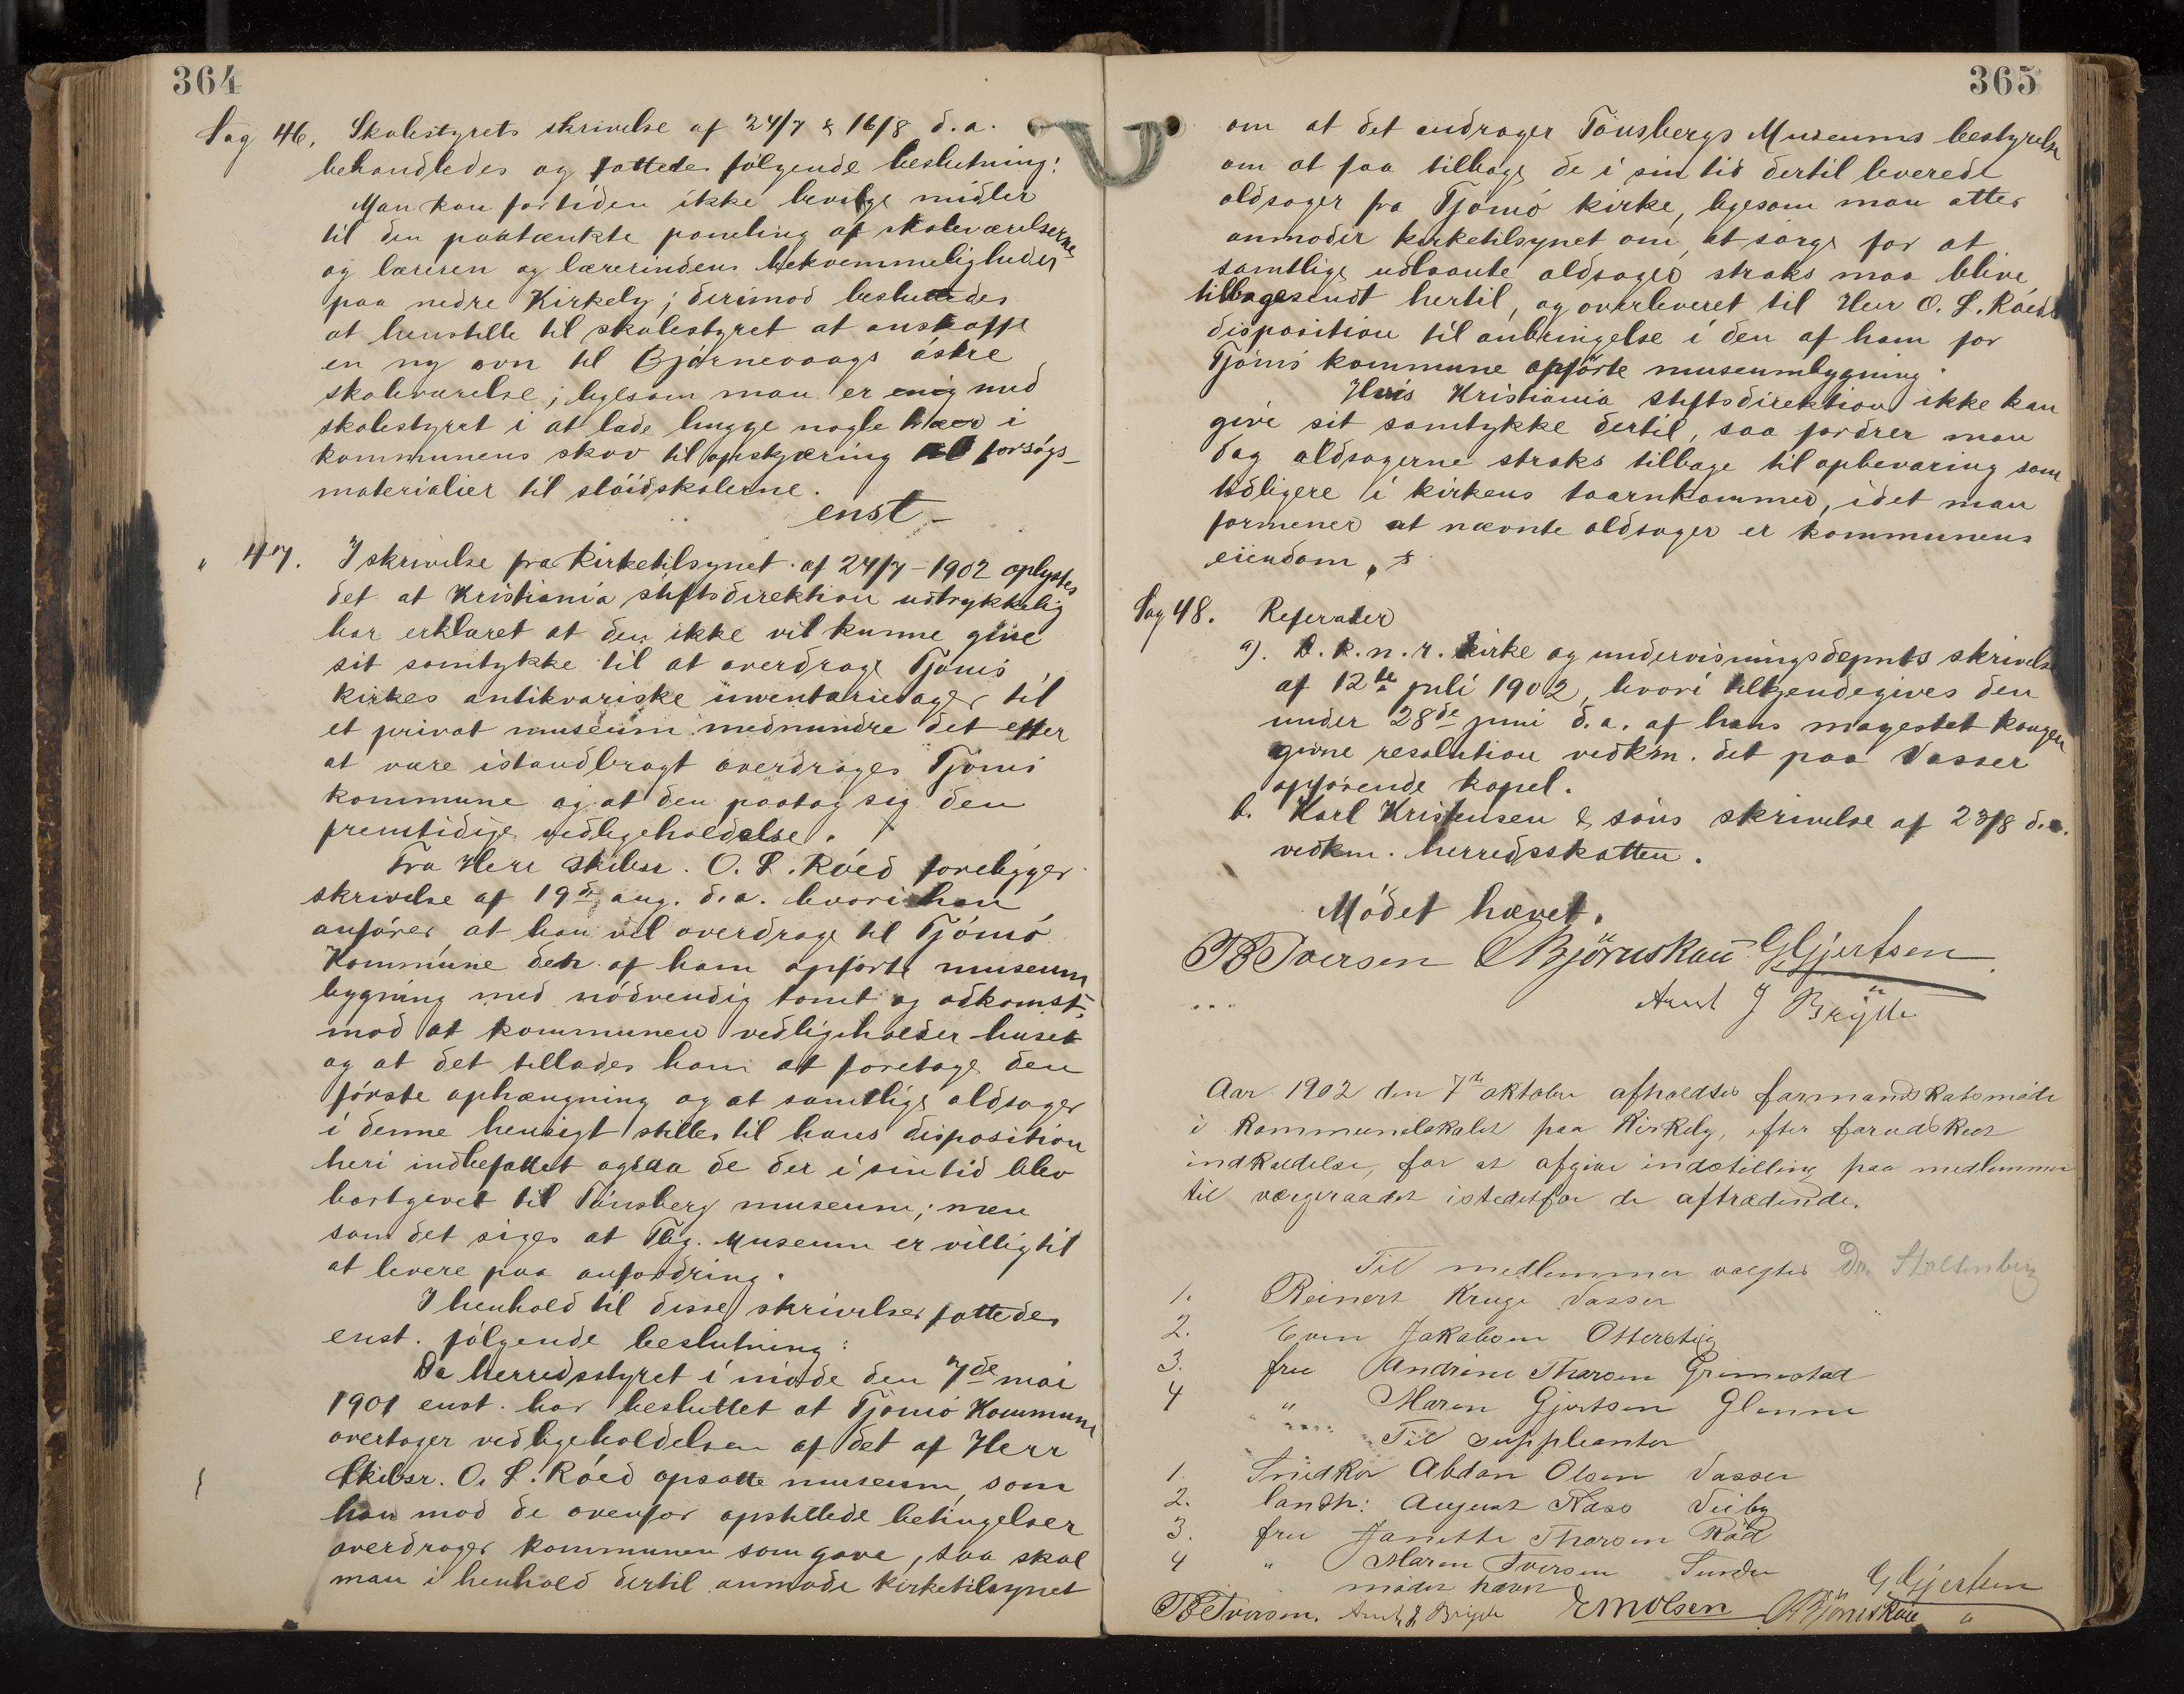 364
Sag 46. Skolestyrets skrivelse af 24/7 & 16/8 d.a.
behandledes og fattedes følgende beslutning:
Man kan fortiden ikke bevilge midler
til den paatænkte paneling af skoleværelserne
og læreren og lærerindens bekvemmeligheder
paa nedre Kirkely; derimod besluttedes
at henstille til skolestyret at anskaffe
en ny ovn til Bjørnevaags østre
skoleværelse; ligesom man er enig med
skolestyret i at lade hugge nogle trær i
kommunens skov til opskjæring forsøgs-
materialier til sløidskolerne.
enst-
" 47. I skrivelse fra Kirketilsynet af 24/7-1902 oplystes
det at Kristiania stiftsdirektion udtrykkelig
har erklæret at den ikke vil kunne give
sit samtykke til at overdrage Tjømø
kirkes antikvariske inventariesager til
et privat museum medmindre det efter
at være istandbragt overdrages Tjømø
kommune og at den paatog sig den
fremtidige vedligeholdelse.
Fra Herr skibsr. O. L. Røed foreligger
skrivelse af 19de aug. d.a. hvori han
anfører at han vil overdrage til Tjømø
Kommune den af ham opførte museum
bygning med nødvendig tomt og adkomst,
mod at kommunen vedligeholder huset
og at det tillades ham at foretage den
første ophængning og at samtlige oldsager
i denne hensigt stilles til hans disposition
heri indbefattet ogsaa de der i sin tid blev
bortgivet til Tønsberg museum; men
som det siges at Tbg. Museum er villig til
at levere paa anfordring.
I henhold til disse skrivelser fattedes
enst. følgende beslutning:
Da herredsstyret i møde den 7de mai
1901 enst. har besluttet at Tjømø Kommune
overtager vedligeholdelsen af det af Herr
Skibsr. O. L. Røed opsatte museum, som
han mod de ovenfor opstillede betingelser
overdrager kommunen som gave, saa skal
man i henhold dertil anmode kirketilsynet
365
om at det andrager Tønsbergs Museums bestyrelse
om at faa tilbage de i sin tid dertil leverede
oldsager fra Tjømø kirke, ligesom man atter
anmoder kirketilsynet om at sørge for at
samtlige udlaante oldsager straks maa blive
tilbagesendt hertil, og overleveret til Herr O. L. Røeds
disposition til anbringelse i den af ham for
Tjømø kommune opførte museumbygning.
Hvis Kristiania stiftsdirektion ikke kan
give sit samtykke dertil, saa fordrer man
dog oldsagerne straks tilbage til opbevaring som
tidligere i kirkens taarnkammer, idet man
formener at nævnte oldsager er kommunens
eiendom.
Sag 48. Referater
a). D. k. n. r. kirke og undervisningsdepmts skrivelse
af 12te juli 1902, hvori tilkjendegives den
under 28de juni d.a. af hans magestæt kongen
givne resolution vedkm. det paa Vasser
opførende kapel.
b. Karl Kristensen & søns skrivelse af 23/8 d.a.
vedkm. herredsskatten.
Mødet hævet.
B Iversen Bjørnskau G Gjertsen
Arnt J Bryde
Aar 1902 den 7de oktober afholdtes formandskabsmøde
i kommunelokalet paa Kirkely, efter forudskeet
indkaldelse, for at afgive indstilling paa medlemmer
til værgeraadet istedetfor de aftrædende.
Til medlemmer valgtes Dr. Stoltenberg
1. Reinert Kruge Vasser
2. Even Jakobsen Otterstig
3. fru Andrine Thorsen Grimestad
4 " Maren Gjertsen Glenne
Til suppleanter
1. Snedker Abdon Olsen Vasser
2. landh: August Kaso Veiby
3. fru Janette Thorsen Rød
4 " Maren Iversen Sunde
mødet hævet G Gjertsen
B Iversen. Arnt J. Bryde E M Olsen Bjørnskau